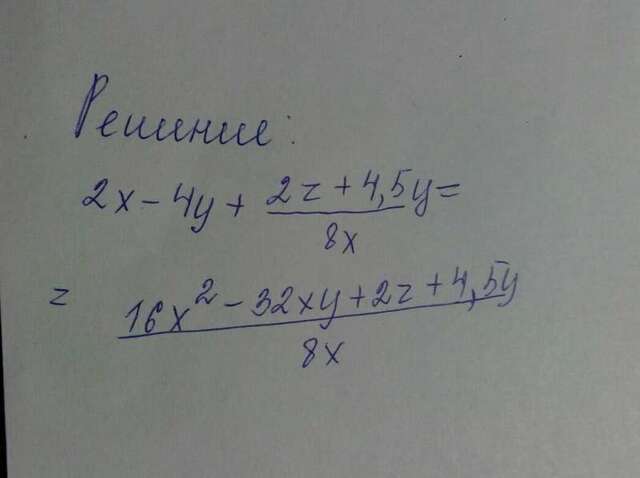 Решение:
2x - 4y + (2z + 4,5y)/8x =
= (16x² - 32xy + 2z + 4,5y)/8x